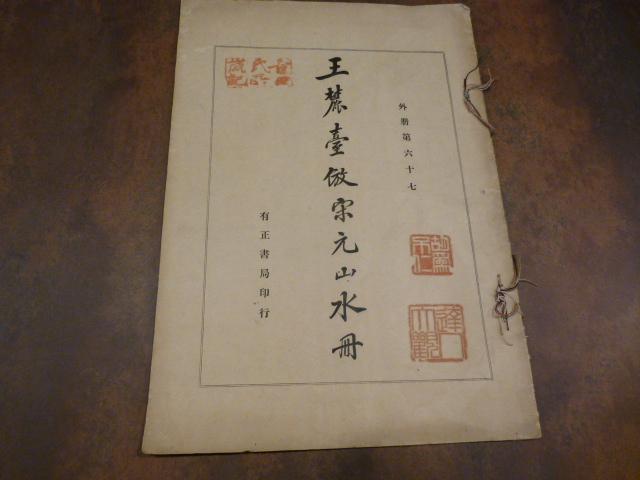 外册第六十七
王麓臺倣宋元山水冊
有正書局印行